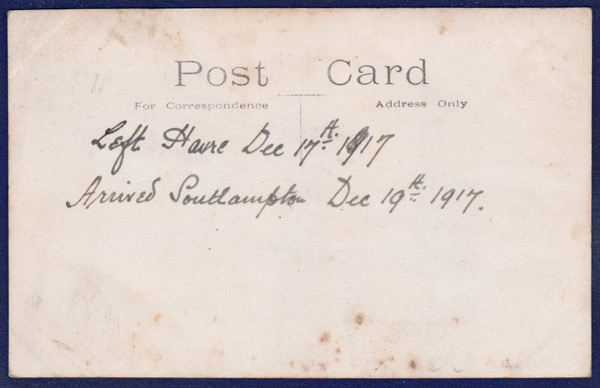 Post Card
For Correspondence Address Only
Left Havre Dec 17th. 1917
Arrived Southampton Dec 19th. 1917.